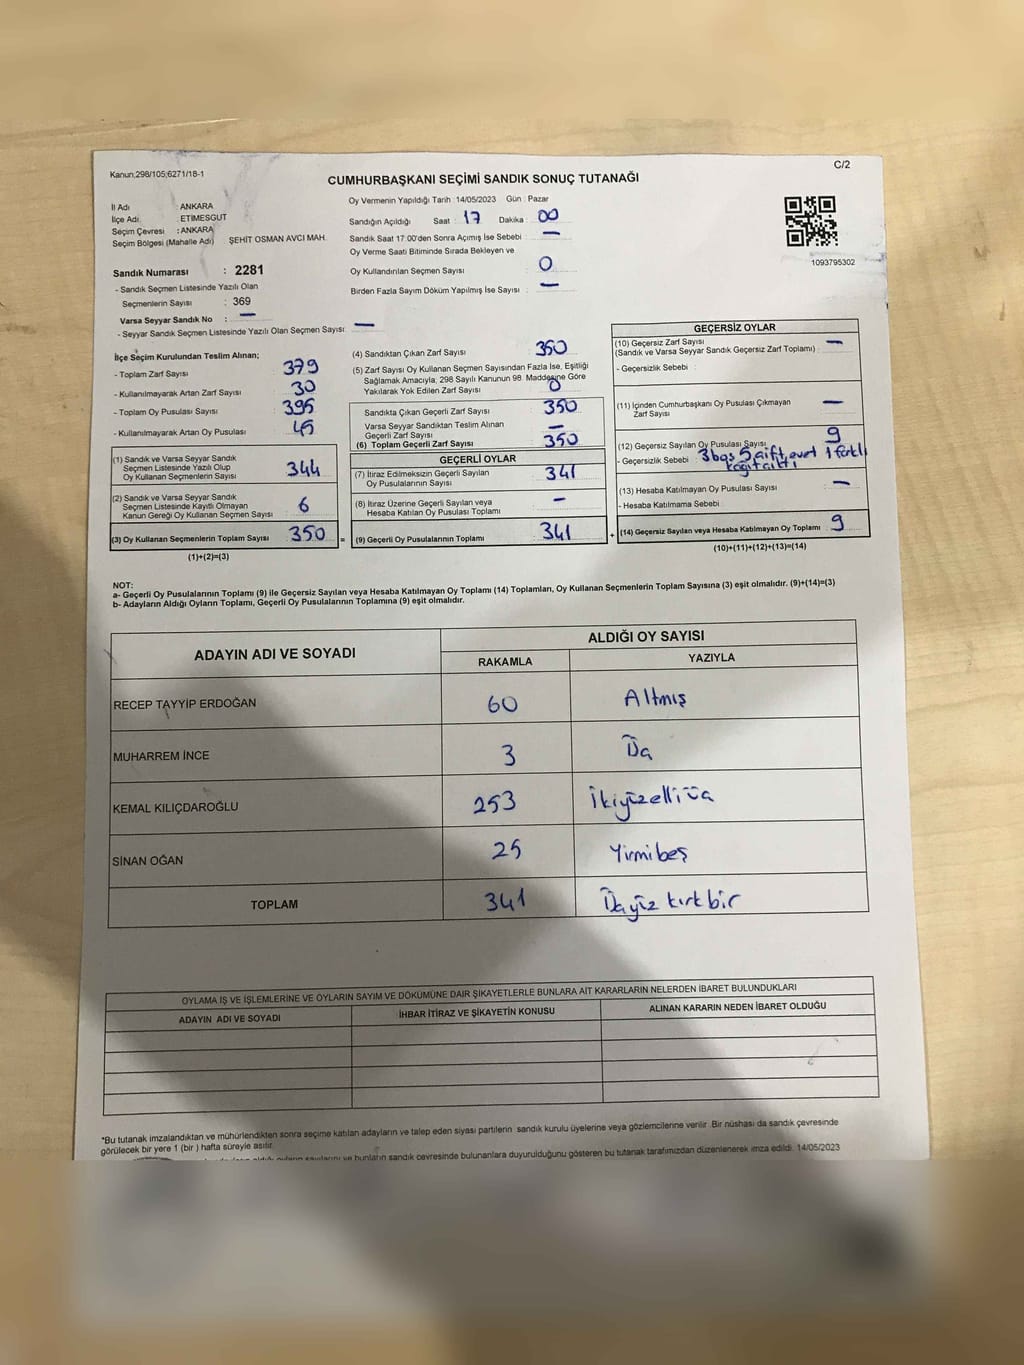 C/2
Kanun;298/105;6271/18-1
CUMHURBAŞKANI SEÇİMİ SANDIK SONUÇ TUTANAĞI
İl Adı : ANKARA
İlçe Adı : ETİMESGUT
Seçim Çevresi : ANKARA
Seçim Bölgesi (Mahalle Adı) ŞEHİT OSMAN AVCI MAH.
Sandık Numarası : 2281
- Sandık Seçmen Listesinde Yazılı Olan
Seçmenlerin Sayısı : 369
Varsa Seyyar Sandık No : —
- Seyyar Sandık Seçmen Listesinde Yazılı Olan Seçmen Sayısı: —
Oy Vermenin Yapıldığı Tarih 14/05/2023 Gün : Pazar
Sandığın Açıldığı Saat : 17 Dakika : 00
Sandık Saat 17:00'den Sonra Açımış İse Sebebi : —
Oy Verme Saati Bitiminde Sırada Bekleyen ve
Oy Kullandırılan Seçmen Sayısı : 0
Birden Fazla Sayım Döküm Yapılmış İse Sayısı : —
1093795302
İlçe Seçim Kurulundan Teslim Alınan;
- Toplam Zarf Sayısı : 379
- Kullanılmayarak Artan Zarf Sayısı : 30
- Toplam Oy Pusulası Sayısı : 395
- Kullanılmayarak Artan Oy Pusulası : 45
(1) Sandık ve Varsa Seyyar Sandık
Seçmen Listesinde Yazılı Olup
Oy Kullanan Seçmenlerin Sayısı : 344
(2) Sandık ve Varsa Seyyar Sandık
Seçmen Listesinde Kayıtlı Olmayan
Kanun Gereği Oy Kullanan Seçmen Sayısı : 6
(3) Oy Kullanan Seçmenlerin Toplam Sayısı : 350
(1)+(2)=(3)
(4) Sandıktan Çıkan Zarf Sayısı : 350
(5) Zarf Sayısı Oy Kullanan Seçmen Sayısından Fazla İse, Eşitliği
Sağlamak Amacıyla, 298 Sayılı Kanunun 98. Maddesine Göre
Yakılarak Yok Edilen Zarf Sayısı : 0
Sandıkta Çıkan Geçerli Zarf Sayısı : 350
Varsa Seyyar Sandıktan Teslim Alınan
Geçerli Zarf Sayısı : —
(6) Toplam Geçerli Zarf Sayısı : 350
GEÇERLİ OYLAR
(7) İtiraz Edilmeksizin Geçerli Sayılan
Oy Pusulalarının Sayısı : 341
(8) İtiraz Üzerine Geçerli Sayılan veya
Hesaba Katılan Oy Pusulası Toplamı : —
= (9) Geçerli Oy Pusulalarının Toplamı : 341
GEÇERSİZ OYLAR
(10) Geçersiz Zarf Sayısı
(Sandık ve Varsa Seyyar Sandık Geçersiz Zarf Toplamı) : —
- Geçersizlik Sebebi :
(11) İçinden Cumhurbaşkanı Oy Pusulası Çıkmayan
Zarf Sayısı : —
(12) Geçersiz Sayılan Oy Pusulası Sayısı : 9
- Geçersizlik Sebebi : 3 boş 5 çift evet 1 farklı
kağıt çıktı
(13) Hesaba Katılmayan Oy Pusulası Sayısı : —
- Hesaba Katılmama Sebebi :
+ (14) Geçersiz Sayılan veya Hesaba Katılmayan Oy Toplamı : 9
(10)+(11)+(12)+(13)=(14)
NOT:
a- Geçerli Oy Pusulalarının Toplamı (9) ile Geçersiz Sayılan veya Hesaba Katılmayan Oy Toplamı (14) Toplamları, Oy Kullanan Seçmenlerin Toplam Sayısına (3) eşit olmalıdır. (9)+(14)=(3)
b- Adayların Aldığı Oyların Toplamı, Geçerli Oy Pusulalarının Toplamına (9) eşit olmalıdır.
ADAYIN ADI VE SOYADI
ALDIĞI OY SAYISI
RAKAMLA YAZIYLA
RECEP TAYYİP ERDOĞAN 60 Altmış
MUHARREM İNCE 3 Üç
KEMAL KILIÇDAROĞLU 253 İkiyüzelliüç
SİNAN OĞAN 25 Yirmibeş
TOPLAM 341 Üçyüz kırkbir
OYLAMA İŞ VE İŞLEMLERİNE VE OYLARIN SAYIM VE DÖKÜMÜNE DAİR ŞİKAYETLERLE BUNLARA AİT KARARLARIN NELERDEN İBARET BULUNDUKLARI
ADAYIN ADI VE SOYADI İHBAR İTİRAZ VE ŞİKAYETİN KONUSU ALINAN KARARIN NEDEN İBARET OLDUĞU
*Bu tutanak imzalandıktan ve mühürlendikten sonra seçime katılan adayların ve talep eden siyasi partilerin sandık kurulu üyelerine veya gözlemcilerine verilir. Bir nüshası da sandık çevresinde
görülecek bir yere 1 (bir ) hafta süreyle asılır.
oyların sayılarını ve bunların sandık çevresinde bulunanlara duyurulduğunu gösteren bu tutanak tarafımızdan düzenlenerek imza edildi. 14/05/2023